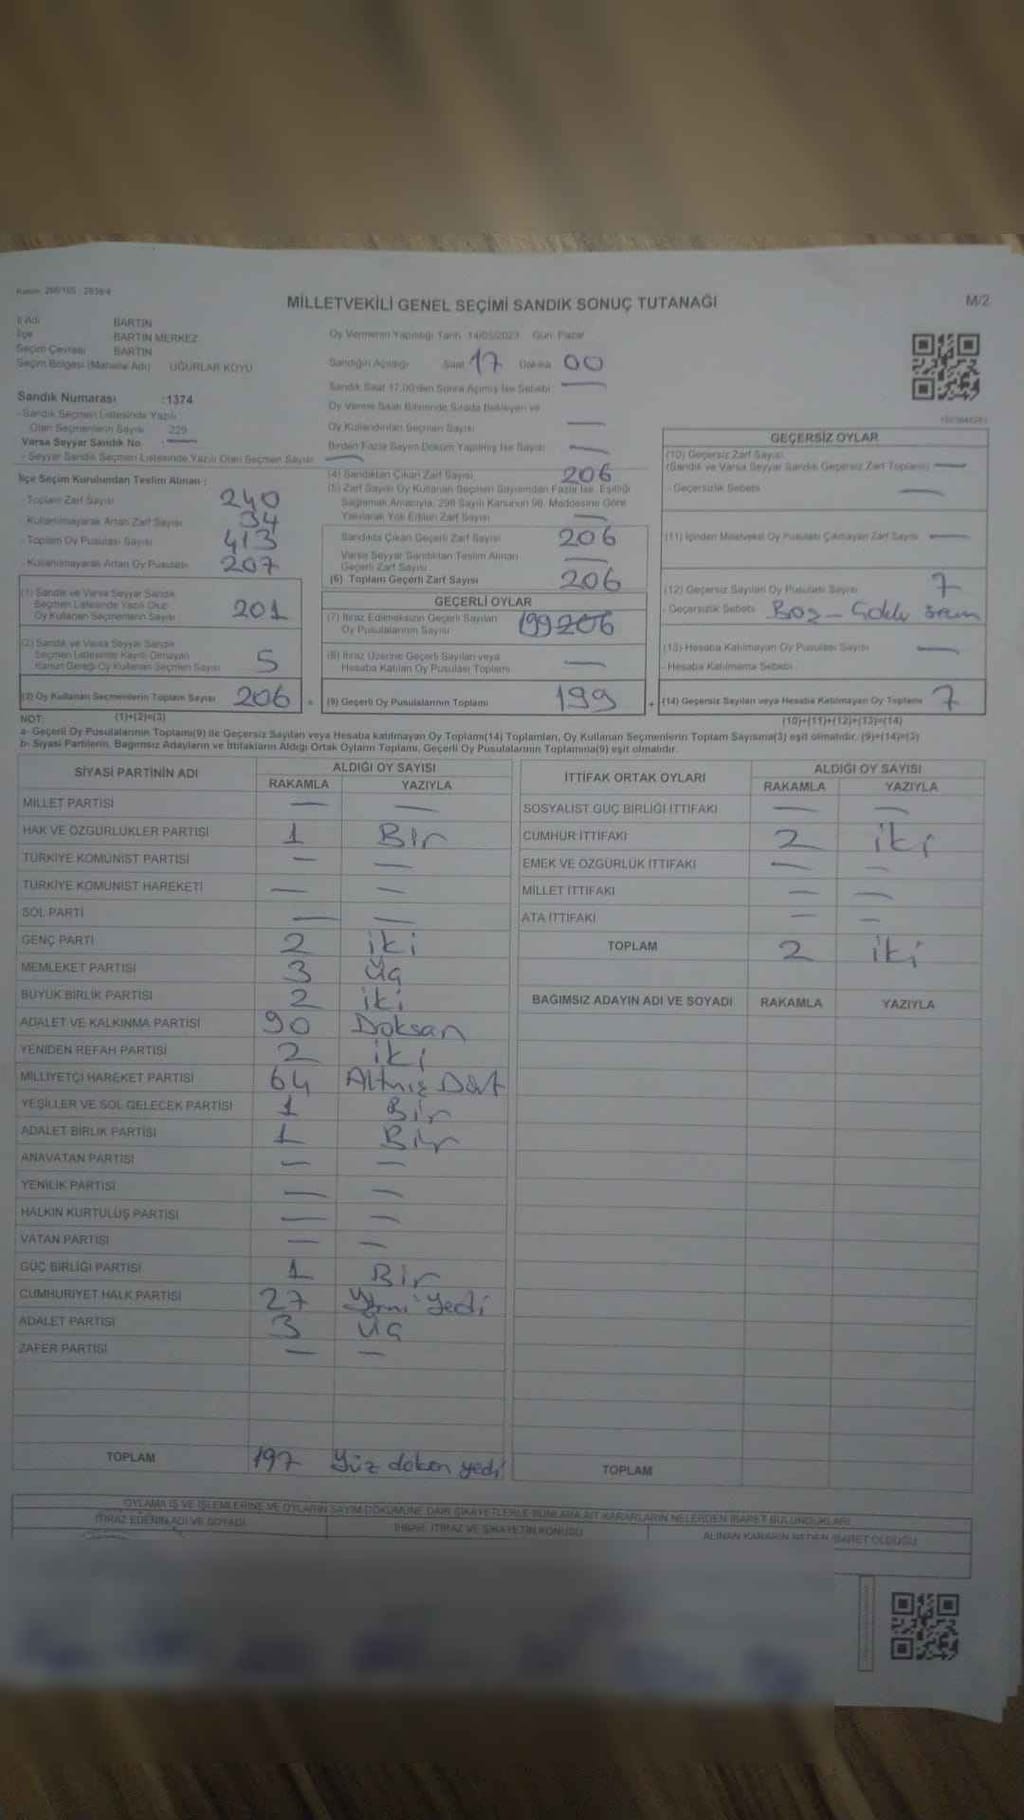 MİLLETVEKİLİ GENEL SEÇİMİ SANDIK SONUÇ TUTANAĞI
M/2
İl Adı BARTIN
İlçe BARTIN MERKEZ
Seçim Çevresi BARTIN
Seçim Bölgesi (Mahalle Adı) UĞURLAR KÖYÜ
Sandık Numarası :1374
- Sandık Seçmen Listesinde Yazılı
Olan Seçmenlerin Sayısı 229
Varsa Seyyar Sandık No —
- Seyyar Sandık Seçmen Listesinde Yazılı Olan Seçmen Sayısı —
İlçe Seçim Kurulundan Teslim Alınan :
- Toplam Zarf Sayısı 240
- Kullanılmayarak Artan Zarf Sayısı 34
- Toplam Oy Pusulası Sayısı 413
- Kullanılmayarak Artan Oy Pusulası 207
(1) Sandık ve Varsa Seyyar Sandık
Seçmen Listesinde Yazılı Olup
Oy Kullanan Seçmenlerin Sayısı 201
(2) Sandık ve Varsa Seyyar Sandık
Seçmen Listesinde Kayıtlı Olmayan
Kanun Gereği Oy Kullanan Seçmen Sayısı 5
(3) Oy Kullanan Seçmenlerin Toplam Sayısı 206
(1)+(2)=(3)
Oy Vermenin Yapıldığı Tarih 14/05/2023 Gün Pazar
Sandığın Açıldığı Saat 17 Dakika 00
Sandık Saat 17.00'den Sonra Açılmış İse Sebebi —
Oy Verme Saati Bitiminde Sırada Bekleyen ve
Oy Kullandırılan Seçmen Sayısı —
Birden Fazla Sayım Döküm Yapılmış İse Sayısı —
(4) Sandıktan Çıkan Zarf Sayısı 206
(5) Zarf Sayısı Oy Kullanan Seçmen Sayısından Fazla İse, Eşitliği
Sağlamak Amacıyla, 298 Sayılı Kanunun 98. Maddesine Göre
Yakılarak Yok Edilen Zarf Sayısı —
Sandıkta Çıkan Geçerli Zarf Sayısı 206
Varsa Seyyar Sandıktan Teslim Alınan
Geçerli Zarf Sayısı —
(6) Toplam Geçerli Zarf Sayısı 206
GEÇERLİ OYLAR
(7) İtiraz Edilmeksizin Geçerli Sayılan
Oy Pusulalarının Sayısı 199 206
(8) İtiraz Üzerine Geçerli Sayılan veya
Hesaba Katılan Oy Pusulası Toplamı —
(9) Geçerli Oy Pusulalarının Toplamı 199
GEÇERSİZ OYLAR
(10) Geçersiz Zarf Sayısı
(Sandık ve Varsa Seyyar Sandık Geçersiz Zarf Toplamı) —
- Geçersizlik Sebebi —
(11) İçinden Milletvekili Oy Pusulası Çıkmayan Zarf Sayısı —
(12) Geçersiz Sayılan Oy Pusulası Sayısı 7
- Geçersizlik Sebebi Boş -
(13) Hesaba Katılmayan Oy Pusulası Sayısı —
- Hesaba Katılmama Sebebi
(14) Geçersiz Sayılan veya Hesaba Katılmayan Oy Toplamı 7
(10)+(11)+(12)+(13)=(14)
NOT:
a- Geçerli Oy Pusulalarının Toplamı(9) ile Geçersiz Sayılan veya Hesaba katılmayan Oy Toplamı(14) Toplamları, Oy Kullanan Seçmenlerin Toplam Sayısına(3) eşit olmalıdır. (9)+(14)=(3)
b- Siyasi Partilerin, Bağımsız Adayların ve İttifakların Aldığı Ortak Oyların Toplamı, Geçerli Oy Pusulalarının Toplamına(9) eşit olmalıdır.
SİYASİ PARTİNİN ADI ALDIĞI OY SAYISI
RAKAMLA YAZIYLA
MİLLET PARTİSİ — —
HAK VE ÖZGÜRLÜKLER PARTİSİ 1 Bir
TÜRKİYE KOMÜNİST PARTİSİ — —
TÜRKİYE KOMÜNİST HAREKETİ — —
SOL PARTİ — —
GENÇ PARTİ 2 iki
MEMLEKET PARTİSİ 3 Üç
BÜYÜK BİRLİK PARTİSİ 2 iki
ADALET VE KALKINMA PARTİSİ 90 Doksan
YENİDEN REFAH PARTİSİ 2 iki
MİLLİYETÇİ HAREKET PARTİSİ 64 Altmış Dört
YEŞİLLER VE SOL GELECEK PARTİSİ 1 Bir
ADALET BİRLİK PARTİSİ 1 Bir
ANAVATAN PARTİSİ — —
YENİLİK PARTİSİ — —
HALKIN KURTULUŞ PARTİSİ — —
VATAN PARTİSİ — —
GÜÇ BİRLİĞİ PARTİSİ 1 Bir
CUMHURİYET HALK PARTİSİ 27 Yirmi yedi
ADALET PARTİSİ 3 Üç
ZAFER PARTİSİ — —
TOPLAM 197 Yüz doksan yedi
İTTİFAK ORTAK OYLARI ALDIĞI OY SAYISI
RAKAMLA YAZIYLA
SOSYALİST GÜÇ BİRLİĞİ İTTİFAKI — —
CUMHUR İTTİFAKI 2 iki
EMEK VE ÖZGÜRLÜK İTTİFAKI — —
MİLLET İTTİFAKI — —
ATA İTTİFAKI — —
TOPLAM 2 iki
BAĞIMSIZ ADAYIN ADI VE SOYADI RAKAMLA YAZIYLA
TOPLAM
OYLAMA İŞ VE İŞLEMLERİNE VE OYLARIN SAYIM DÖKÜMÜNE DAİR ŞİKAYETLERLE BUNLARA AİT KARARLARIN NELERDEN İBARET BULUNDUKLARI
İTİRAZ EDENİN ADI VE SOYADI İHBAR, İTİRAZ VE ŞİKAYETİN KONUSU ALINAN KARARIN NEDEN İBARET OLDUĞU